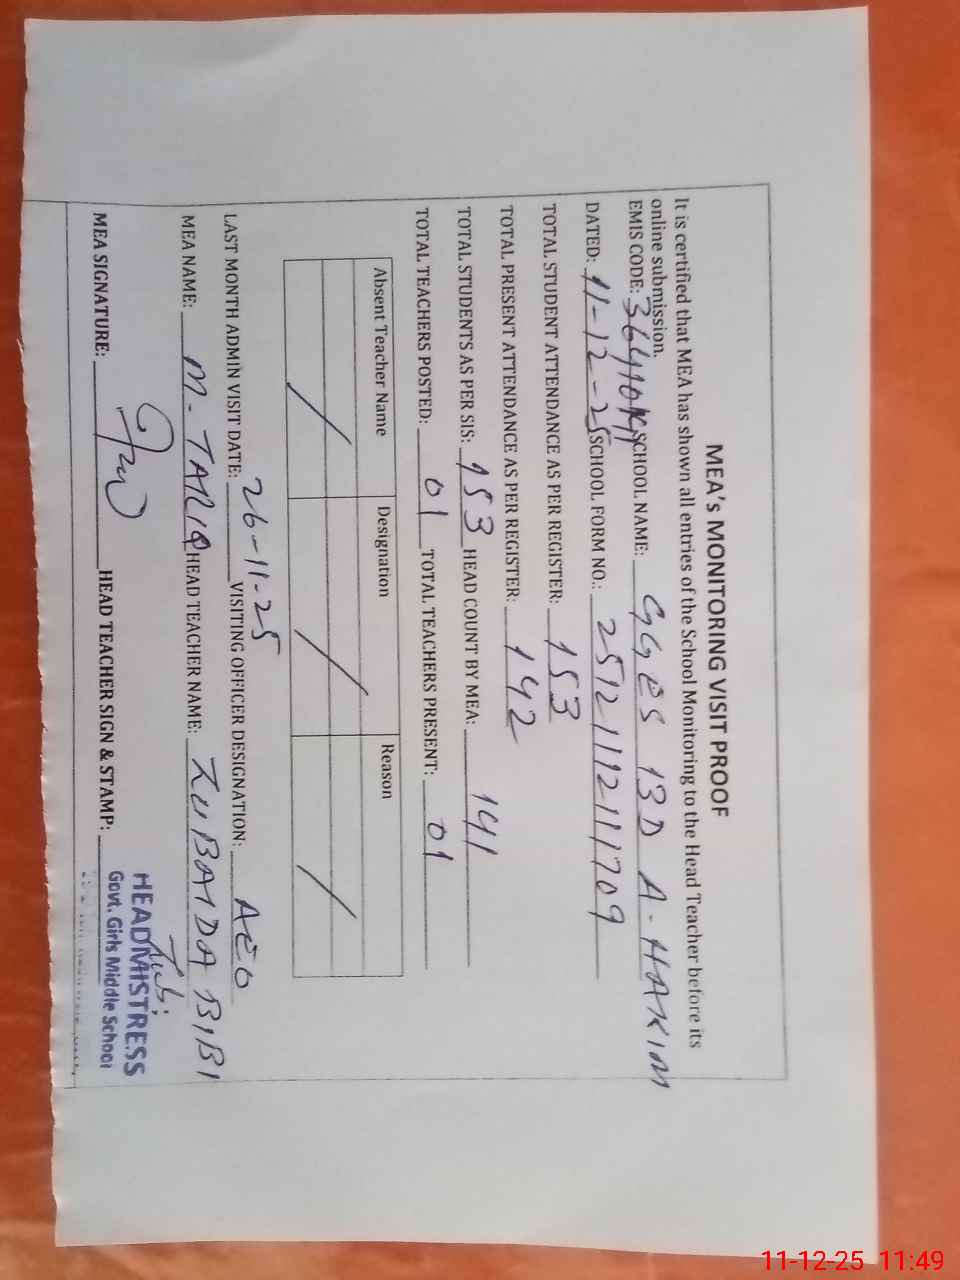 MEA's MONITORING VISIT PROOF
It is certified that MEA has shown all entries of the School Monitoring to the Head Teacher before its
online submission.
EMIS CODE: SCHOOL NAME: GGES 13D A. HAKIM
DATED: 11-12-25 SCHOOL FORM NO.: 2512111211709
TOTAL STUDENT ATTENDANCE AS PER REGISTER: 153
TOTAL PRESENT ATTENDANCE AS PER REGISTER: 142
TOTAL STUDENTS AS PER SIS: 153 HEAD COUNT BY MEA: 141
TOTAL TEACHERS POSTED: 01 TOTAL TEACHERS PRESENT: 01
Absent Teacher Name Designation Reason
LAST MONTH ADMIN VISIT DATE: 26-11-25 VISITING OFFICER DESIGNATION: AEO
MEA NAME: M. TARIQ HEAD TEACHER NAME: ZUBAIDA BIBI
MEA SIGNATURE: HEAD TEACHER SIGN & STAMP:
HEADMISTRESS
Govt. Girls Middle School
11-12-25 11:49